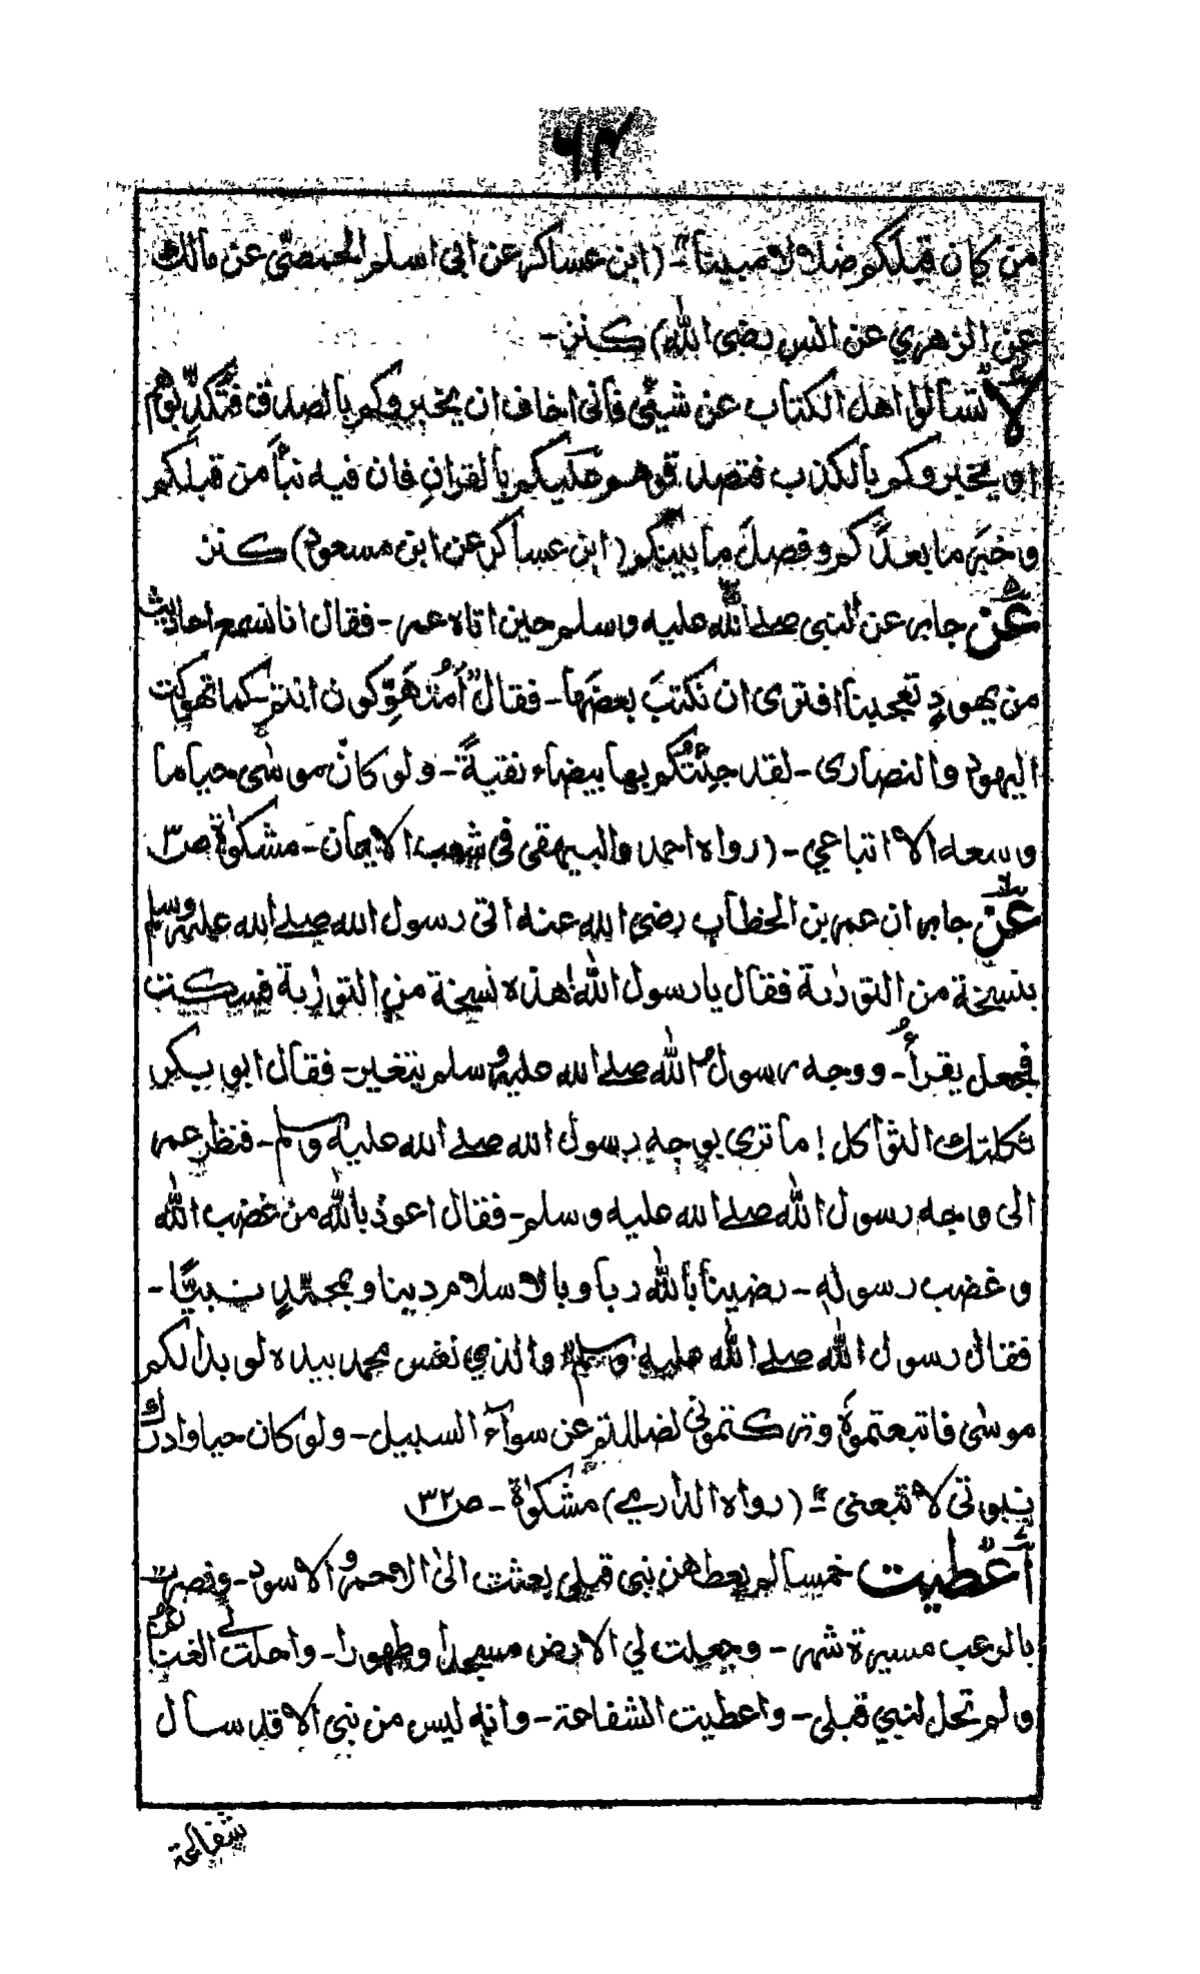 ٦٢
من كان قبلكم ضلالا مبينا"ـ (ابن عساكر عن ابى اسلم الحمصّى عن مالك
عن الزهري عن انس رضى الله) كنزـ
لا تسألوا اهل الكتاب عن شيئى فانى اخاف ان يخبروكم بالصدق فتكذّبوهم
او يخبروكم بالكذب فتصدقوهم عليكم بالقرانِ فان فيه نبأ من قبلكم
وخبَر ما بعدكم وفصلَ ما بينكم (ابن عساكر عن ابن مسعود) كنز
عن جابر عن النبى صلے الله عليه وسلم حين اتاه عمرـ فقال انا نسمع احاديث
من يهودٍ تعجبنا افترى ان نكتبَ بعضَهاـ فقال "اَمُتَهَوِّكون انتم كما تهوكت
اليهود والنصارىـ لقد جئتُكم بها بيضاء نقيةًـ ولو كان موسٰى حيا ما
وسعه الا اتباعيـ (رواه احمد والبيهقى فى شعب الايمانـ مشكوٰة ص٣
عن جابر ان عمر بن الخطاب رضى الله عنه اتى رسول الله صلے الله عليه وسلم
بنسخة من التورٰىة فقال يا رسول الله! هٰذه نسخة من التورٰىة فسكت
فجعل يقرأُـ ووجه رسول الله صلے الله عليه وسلم يتغيرـ فقال ابو بكر
ثكلتك الثواكل! ما ترى بوجه رسول الله صلے الله عليه وسلمـ فنظر عمر
الى وجه رسول الله صلے الله عليه وسلمـ فقال اعوذ بالله من غضب الله
وغضب رسولهـ رضينا بالله ربا وبالاسلام دينا وبمحمّدٍ نبيًّاـ
فقال رسول الله صلے الله عليه وسلم والذي نفس محمد بيده لو بدا لكم
موسٰى فاتبعتموهٗ وتركتمونى لضللتم عن سوآء السبيلـ ولو كان حيا وادرك
نبوتى لاتبعنى"ـ (رواه الدارمے) مشكوٰةـ ص٣٢
اُعطيت خمسا لم يعطهن نبى قبلى بعثت الى الاحمر والاسودـ ونصرت
بالرعب مسيرة شهرـ وجعلت لي الارض مسجدا وطهوراـ واحلت لے الغنائم
ولم تحل لنبي قبلىـ واعطيت الشفاعةـ وانه ليس من نبى الا قد سأل
شفاعة